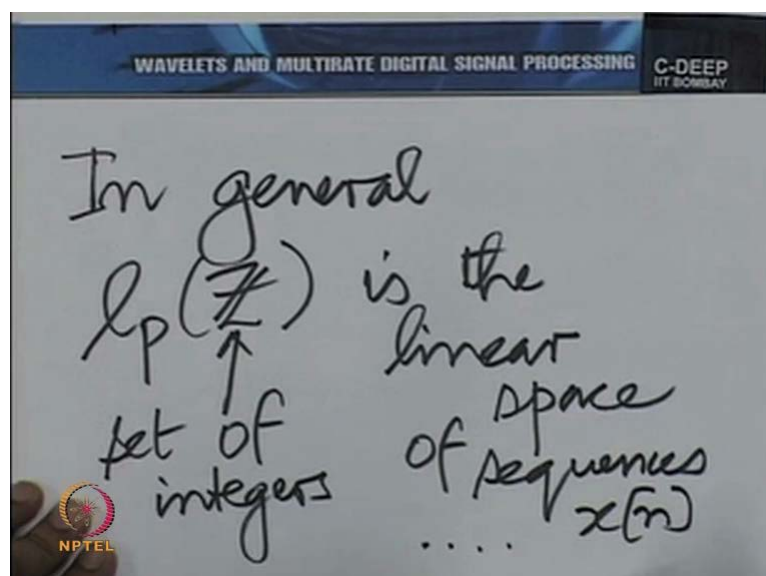 WAVELETS AND MULTIRATE DIGITAL SIGNAL PROCESSING
C-DEEP
IIT BOMBAY
In general
lp(ℤ) is the
linear
space
set of
integers
of sequences
.... x[n]
NPTEL